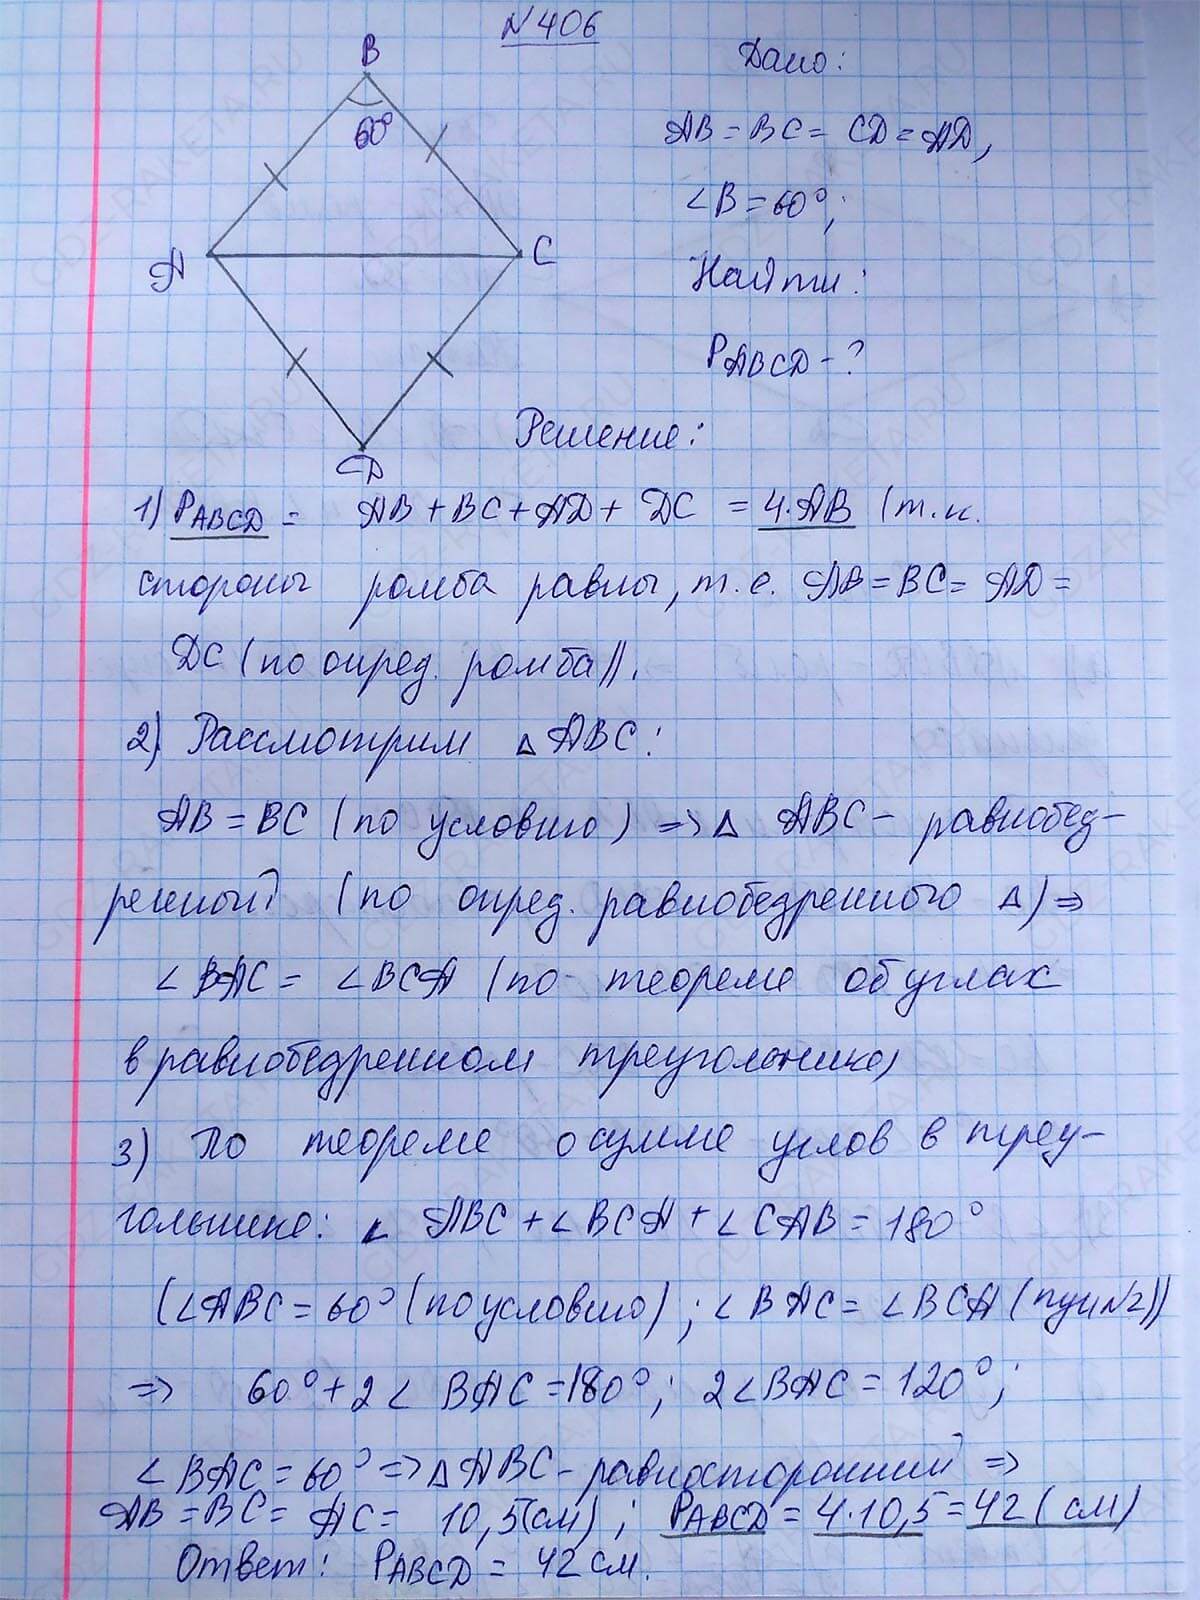 N 406
B
60°
A
C
D
Дано:
AB = BC = CD = AD,
∠B = 60°;
Найти:
PABCD - ?
Решение:
1) PABCD = AB + BC + AD + DC = 4·AB (т.к.
стороны ромба равны, т.е. AB = BC = AD =
DC (по опред. ромба)).
2) Рассмотрим △ABC:
AB = BC (по условию) => △ ABC - равнобед-
ренный (по опред. равнобедренного △) =>
∠BAC = ∠BCA (по теореме об углах
в равнобедренном треугольнике)
3) По теореме о сумме углов в треу-
гольнике: ∠ ABC + ∠BCA + ∠CAB = 180°
(∠ABC = 60° (по условию); ∠BAC = ∠BCA (пун N2))
=> 60° + 2∠BAC = 180°; 2∠BAC = 120°;
∠BAC = 60° => △ABC - равносторонний =>
AB = BC = AC = 10,5 (см); PABCD = 4·10,5 = 42 (см)
Ответ: PABCD = 42 см.